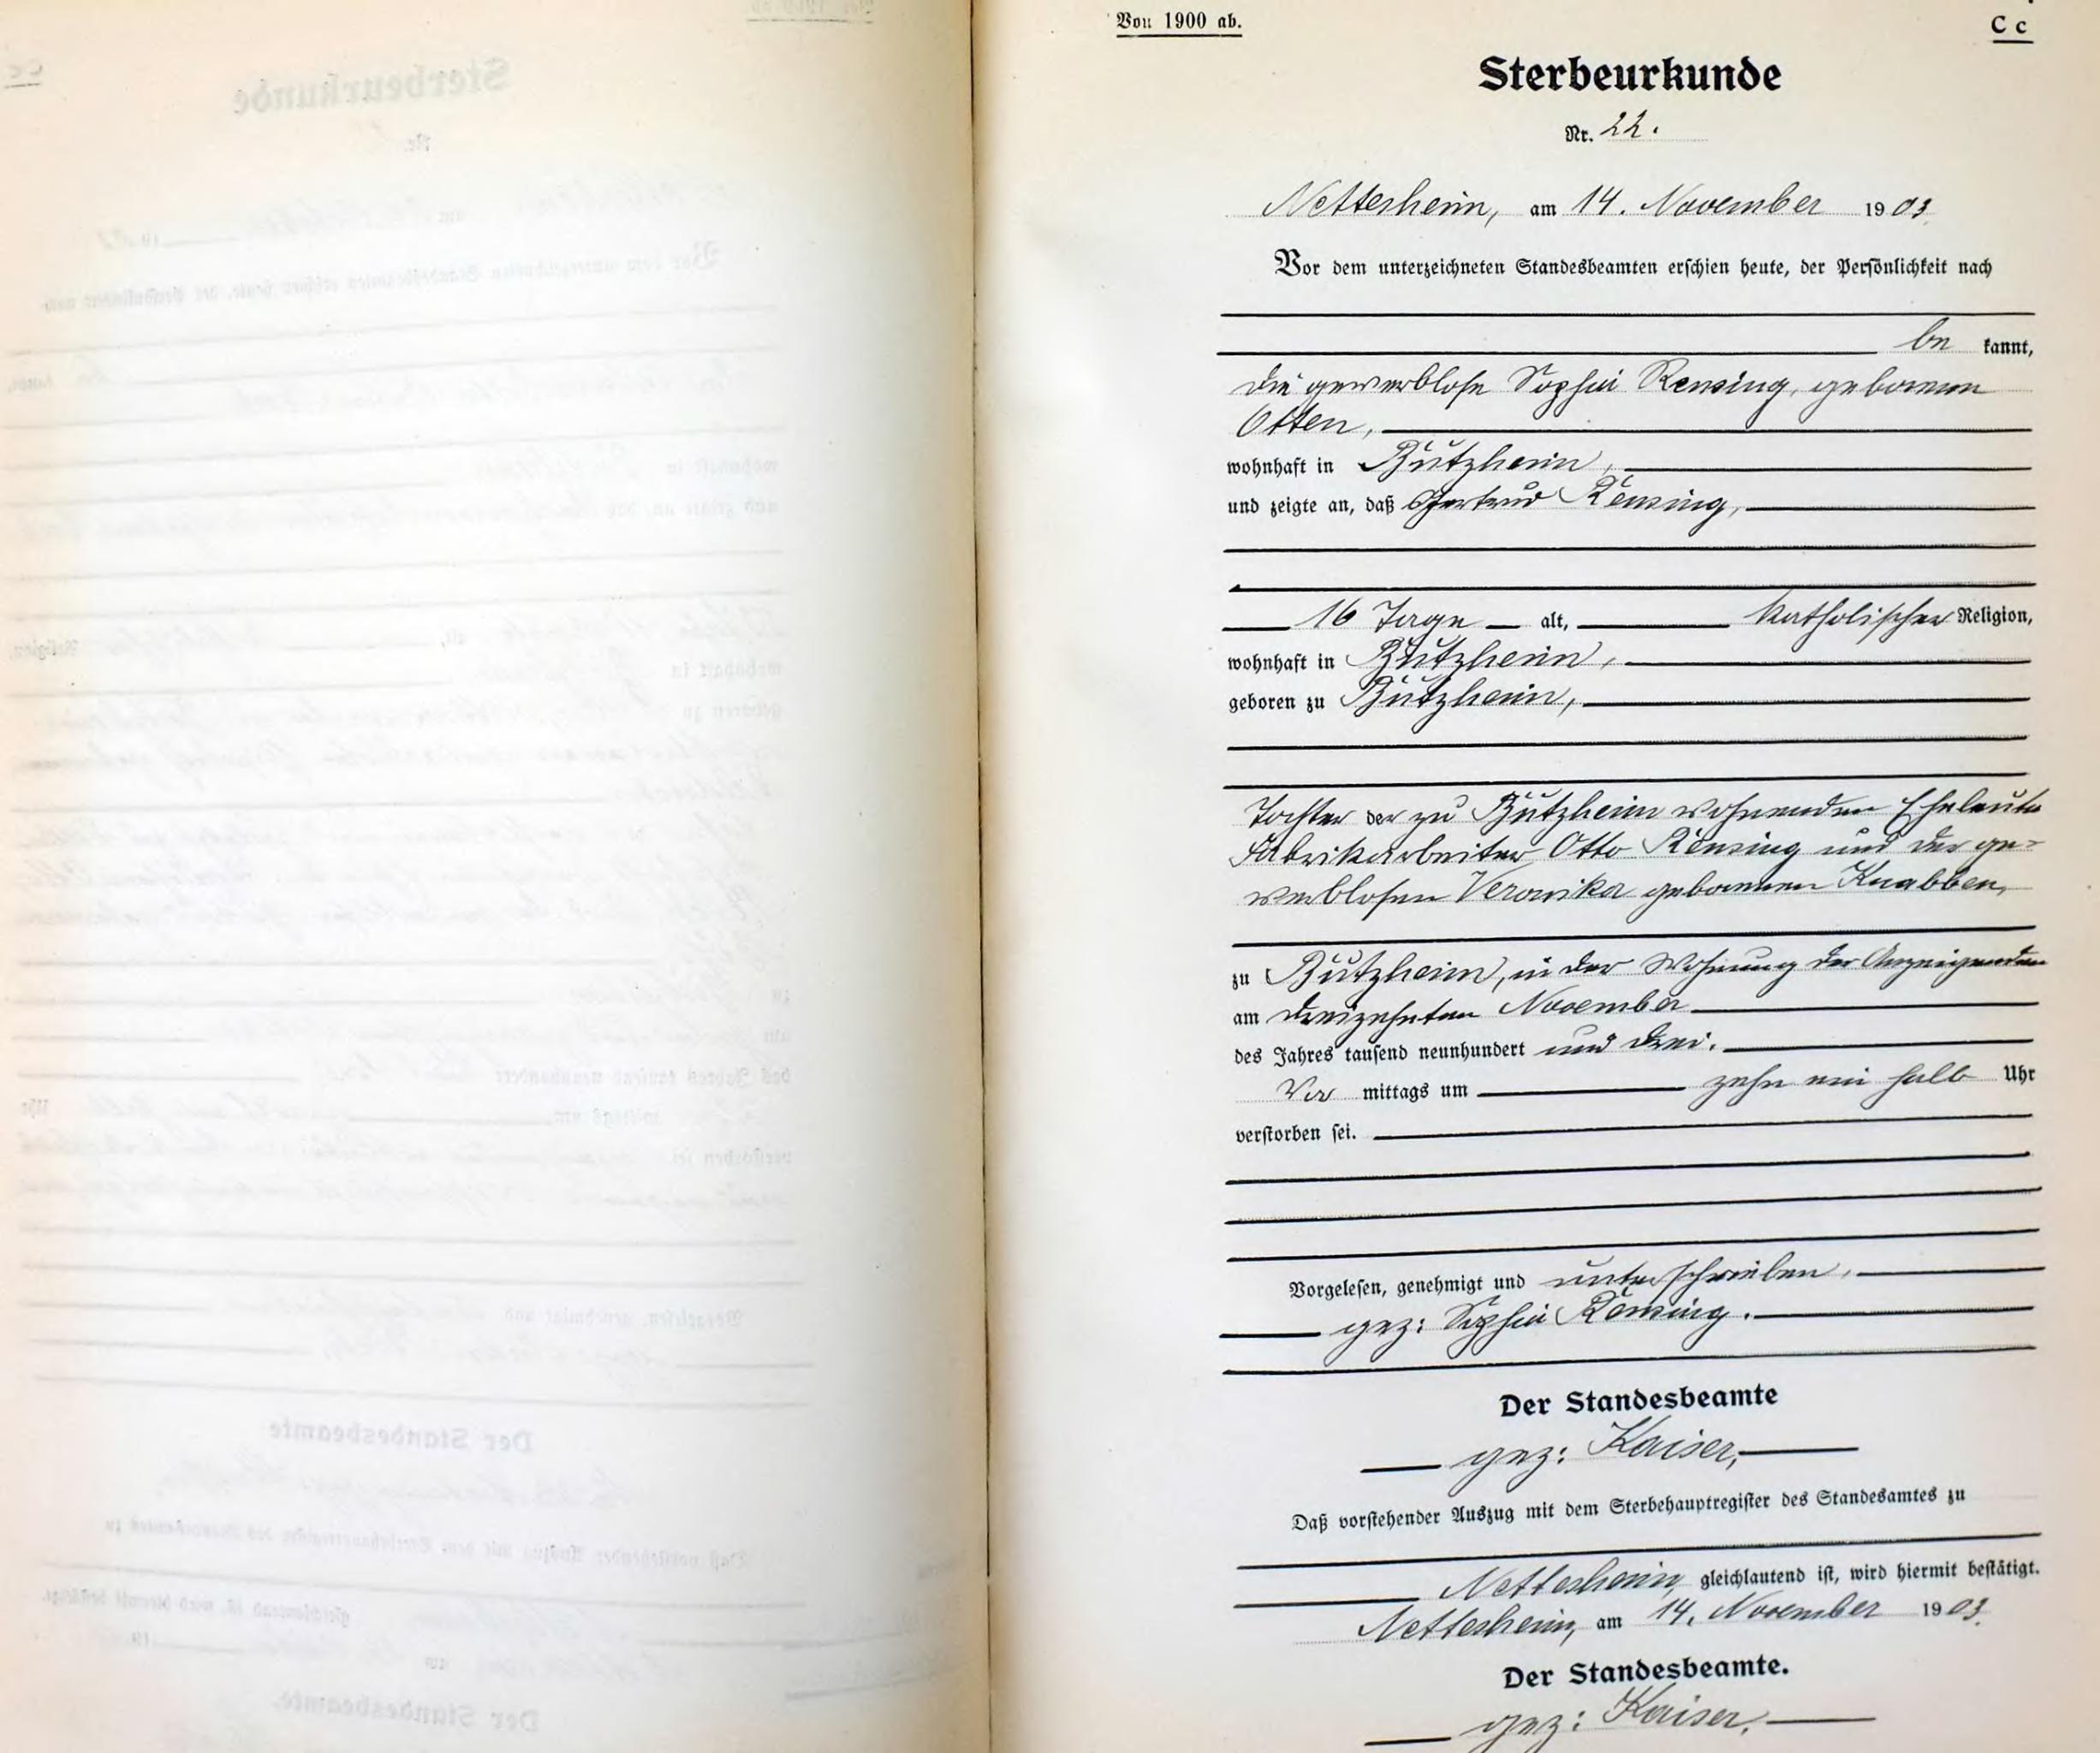 Von 1900 ab.
C c
Sterbeurkunde
Nr. 22.
Nettesheim, am 14. November 1903.
Vor dem unterzeichneten Standesbeamten erschien heute, der Persönlichkeit nach
be kannt,
die gewerblose Sophia Rensing, geborenen
Otten,
wohnhaft in Bützheim,
und zeigte an, daß Gertrud Rensing,
16 Tage alt, katholischer Religion,
wohnhaft in Bützheim,
geboren zu Bützheim,
Tochter der zu Bützheim wohnenden Eheleute
Fabrikarbeiter Otto Rensing und der ge=
werblosen Veronika geborenen Knabben,
zu Bützheim, in der Wohnung der Anzeigenden
am dreizehnten November
des Jahres tausend neunhundert und drei.
Vor mittags um zehn ein halb Uhr
verstorben sei.
Vorgelesen, genehmigt und unterschrieben.
gez: Sophia Rensing.
Der Standesbeamte
gez: Kaiser,
Daß vorstehender Auszug mit dem Sterbehauptregister des Standesamtes zu
Nettesheim gleichlautend ist, wird hiermit bestätigt.
Nettesheim, am 14. November 1903.
Der Standesbeamte.
gez: Kaiser.